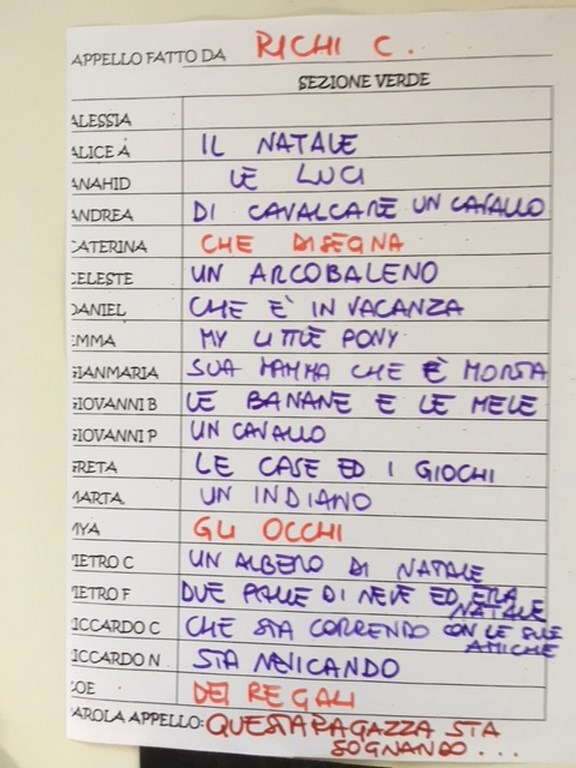 APPELLO FATTO DA RICHI C.
SEZIONE VERDE
ALESSIA
ALICE A IL NATALE
ANAHID LE LUCI
ANDREA DI CAVALCARE UN CAVALLO
CATERINA CHE DISEGNA
CELESTE UN ARCOBALENO
DANIEL CHE E' IN VACANZA
EMMA MY LITTLE PONY
GIANMARIA SUA MAMMA CHE È MORTA
GIOVANNI B LE BANANE E LE MELE
GIOVANNI P UN CAVALLO
GRETA LE CASE ED I GIOCHI
MARTA UN INDIANO
MYA GLI OCCHI
PIETRO C UN ALBERO DI NATALE
PIETRO F DUE PALLE DI NEVE ED ERA
NATALE
RICCARDO C CHE STA CORRENDO CON LE SUE
AMICHE
RICCARDO N STA NEVICANDO
ZOE DEI REGALI
PAROLA APPELLO: QUESTA RAGAZZA STA
SOGNANDO...